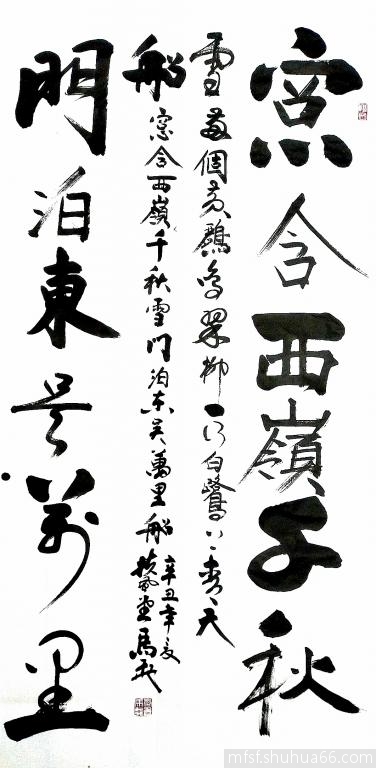 窓含西嶺千秋
雪兩個黃鸝鳴翠柳一行白鷺上青天
船窓含西嶺千秋雪門泊東吳萬里船
辛丑年夏
門泊東吳萬里
mfsf.shuhua66.com